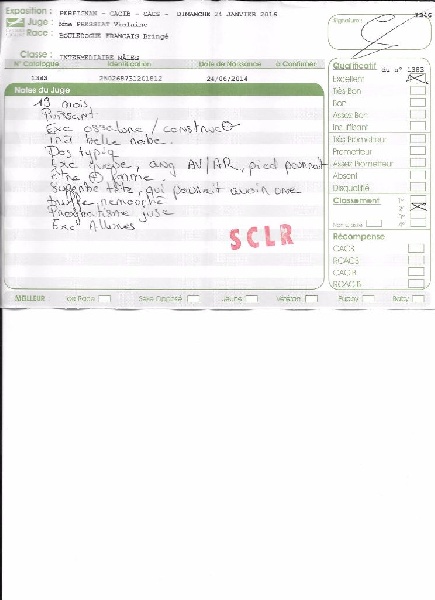 Exposition : PERPIGNAN - CACIB - CACS - DIMANCHE 24 JANVIER 2016
Juge : Mme PERSSIAT Violaine
Race : BOULEDOGUE FRANCAIS Bringé
Classe : INTERMEDIAIRE MÂLES
N° Catalogue Identification Date de Naissance à Confirmer
1383 250268731201812 24/06/2014
Notes du Juge
19 mois
Puissant
Exc ossature / construct°
Très belle robe.
Dos typiq
Exc queue, ang AV/AR, pied pourrait
être ⊕ fermé.
Superbe tête, qui pourrait avoir une
truffe remontée
Prognatisme juste
Exc Allures
SCLR
Signature :
Qualificatif du n° 1383
Excellent
Très Bon
Bon
Assez Bon
Insuffisant
Très Prometteur
Prometteur
Assez Prometteur
Absent
Disqualifié
Classement 1er
2e
3e
4e
Récompense
CACS
RCACS
CACIB
RCACIB
MEILLEUR de Race Sexe Opposé Jeune Vétéran Puppy Baby